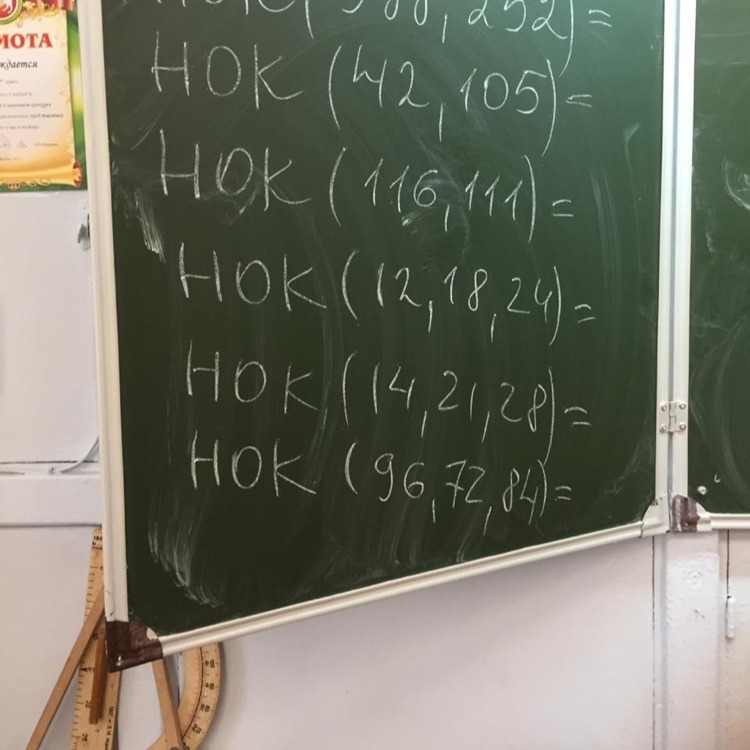 МОТА
ждается
НОК (42, 105) =
НОК (116, 111) =
НОК (12, 18, 24) =
НОК (14, 21, 28) =
НОК (96, 72, 84) =